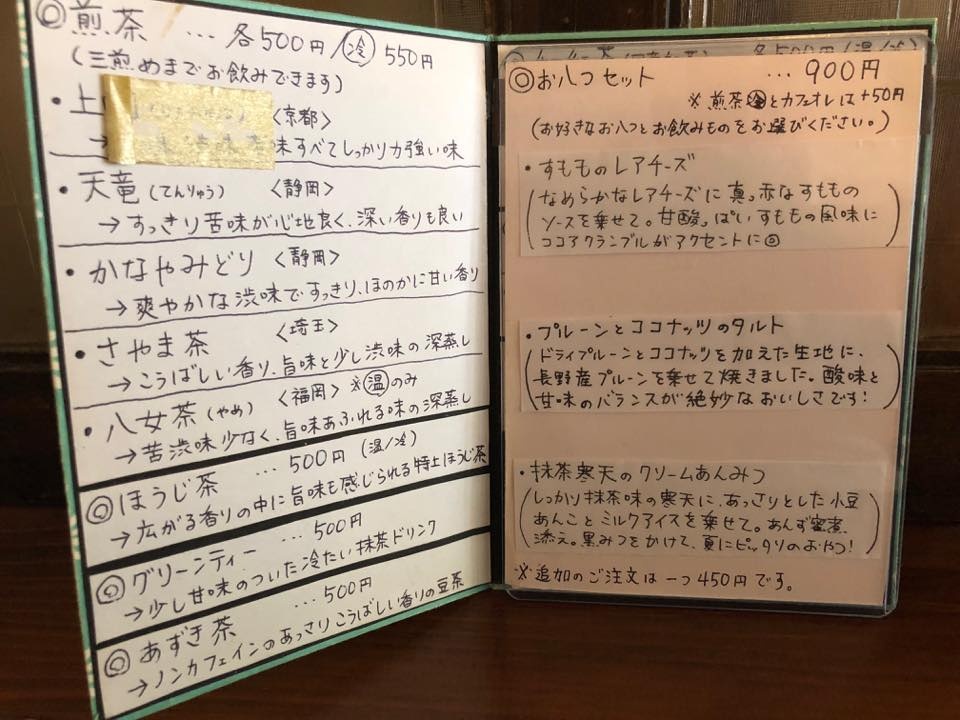 ◎煎茶 … 各500円/㊥冷 550円
(三煎めまでお飲みできます)
・上 〈京都〉
→ 味すべてしっかり力強い味
・天竜(てんりゅう) 〈静岡〉
→すっきり苦味が心地良く、深い香りも良い
・かなやみどり 〈静岡〉
→爽やかな渋味ですっきり、ほのかに甘い香り
・さやま茶 〈埼玉〉
→こうばしい香り、旨味と少し渋味の深蒸し
・八女茶(やめ) 〈福岡〉※温のみ
→苦渋味少なく、旨味あふれる味の深蒸し
◎ほうじ茶 … 500円(温/冷)
→広がる香りの中に旨味も感じられる特上ほうじ茶
◎グリーンティー … 500円
→少し甘味のついた冷たい抹茶ドリンク
◎あずき茶 … 500円
→ノンカフェインのあっさりこうばしい香りの豆茶
◎お八つセット … 900円
※煎茶冷とカフェオレは+50円
(お好きなお八つとお飲みものをお選びください。)
・すもものレアチーズ
(なめらかなレアチーズに真っ赤なすももの
ソースを乗せて。甘酸っぱいすももの風味に
ココアクランブルがアクセントに◎)
・プルーンとココナッツのタルト
(ドライプルーンとココナッツを加えた生地に、
長野産プルーンを乗せて焼きました。酸味と
甘味のバランスが絶妙なおいしさです!)
・抹茶寒天のクリームあんみつ
(しっかり抹茶味の寒天に、あっさりとした小豆
あんことミルクアイスを乗せて。あんず蜜煮
添え。黒みつをかけて、夏にピッタリのおやつ!)
※追加のご注文は一つ450円です。